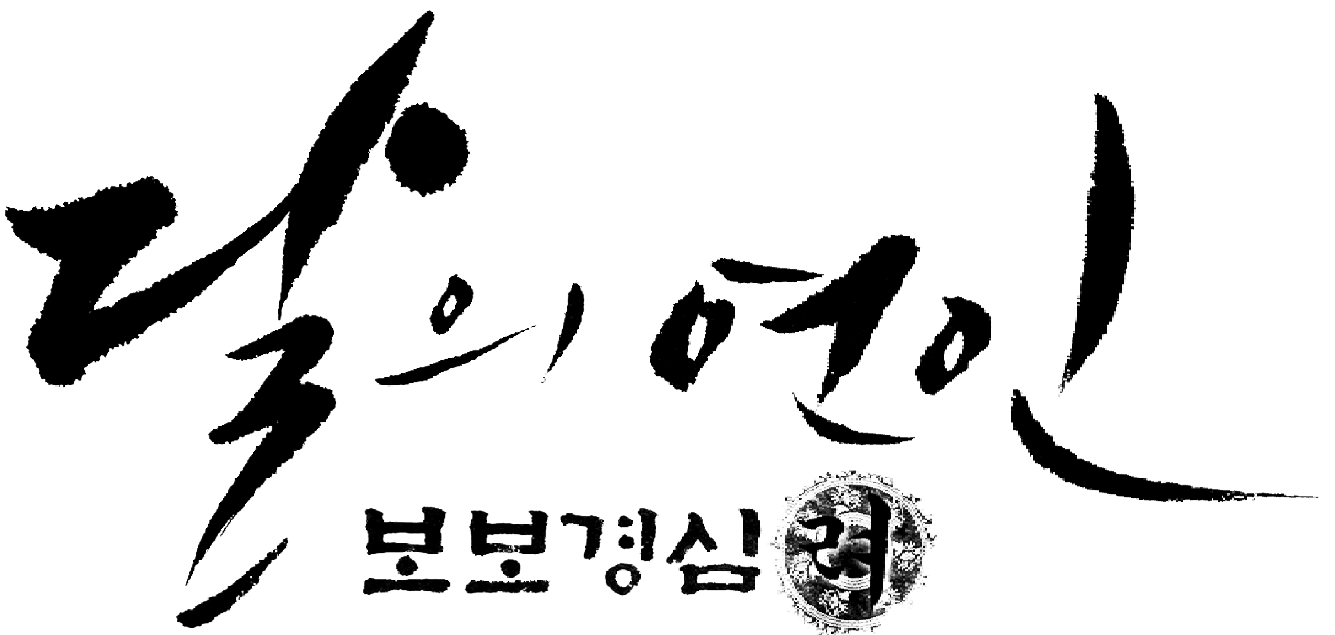 달의 연인
보보경심 려